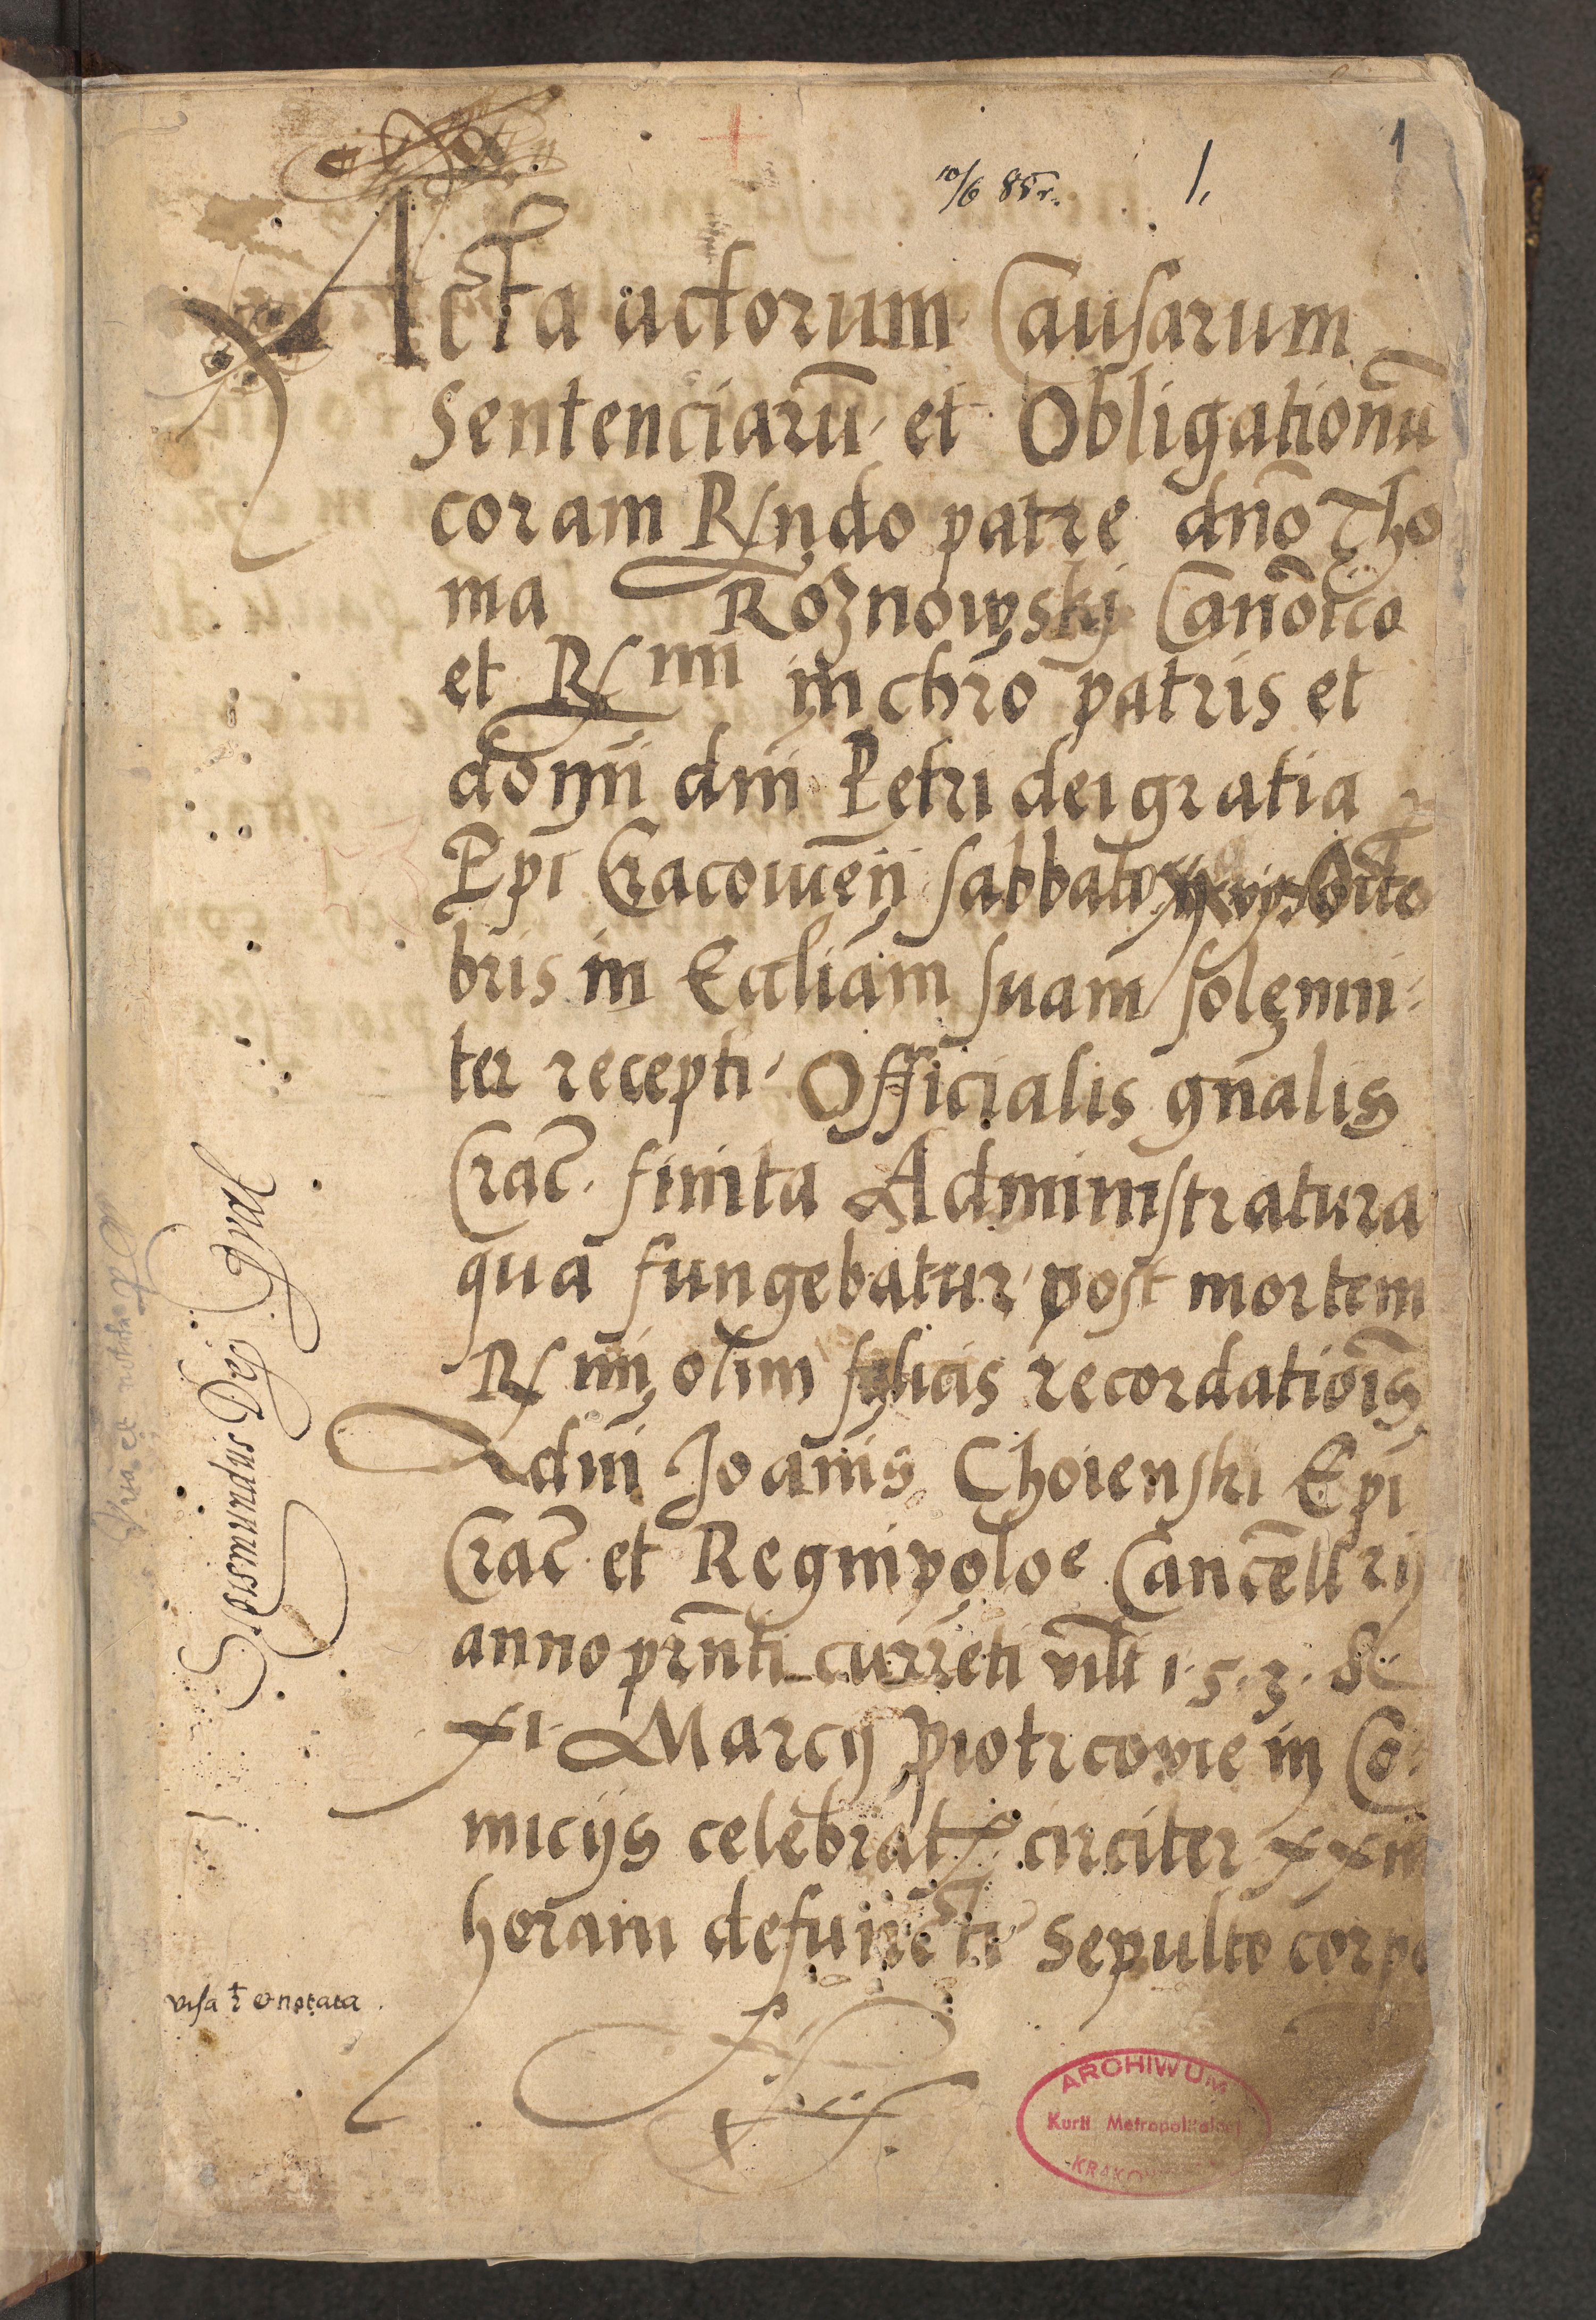 1
10/6 85r. 1,
Acta actorum Causarum
Sentenciarū et Obligationū
coram Rndo patre dno Tho
ma Roznowskj Canōico
et R mi in chro patris et
domi dni Petri dei gratia
Epi Cracovień Sabbato Octo
bris in Eccliam suam solemni-
ter recepti Officialis gnalis
Crac. finita Administratura
qua fungebatur post mortem
R mi olim felicis recordatiois
dni Joanis Choienski Epi
Crac et Regni polo e Cancellrij
anno prnti currēti vilt 1.5.3.8
xi Marcij Piotrcovie in Co-
micijs celebrat circiter xxiii
horam defuncti Sepulto corpo
Sigismundus Dej Grat
visa & notata
ARCHIWUM
Kurii Metropolitalnej
KRAKÓW